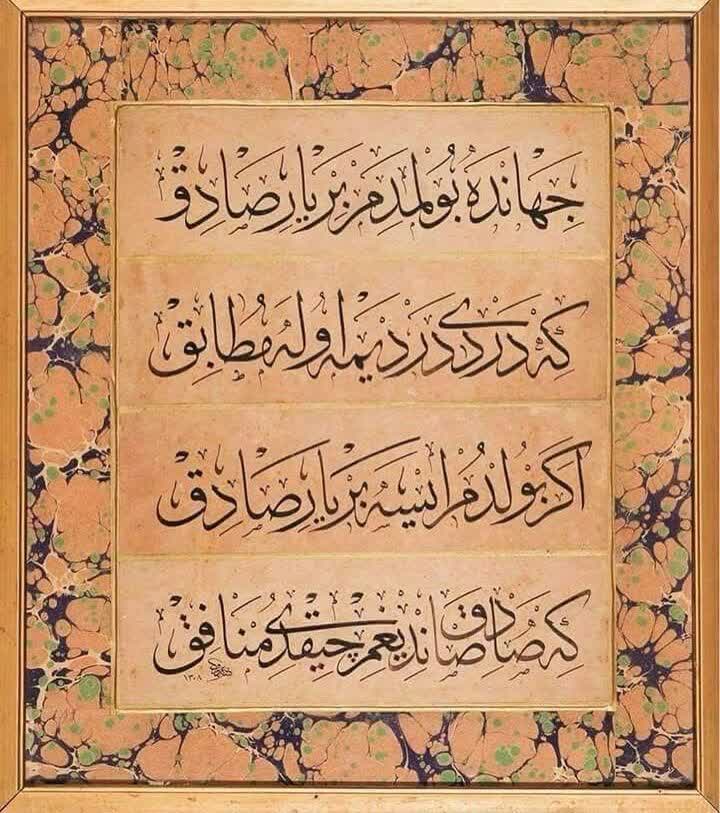 جِهَانْدَه بُولْمَدِمْ بِرْ يَارِ صَادِقْ
كِه دَرْدِی دَرْدِیمَه اُولَه مُطَابِقْ
اَكَرْ بُولْدُمْ اِیسَه بَرْ یَارِ صَادِقْ
كِه صَادِقْ صَانْدِیغِمْ چِیقْدِی مُنَافِقْ
١٣٠٨